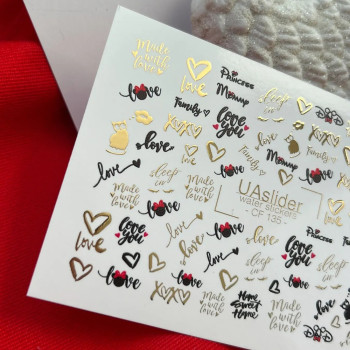 Made
with
love
Princess
Mommy
sleep
in
love
Family
XOXO
Love
you
Family
love
love
sleep
in
love
UAslider
water stickers
- CF 135 -
Made
with
love
love
love
Princess
love
Love
you
love
Love
you
love
love
sleep
in
love
sleep
in
XOXO
Made
with
love
Home
Sweet
Home
Made
with
love
love